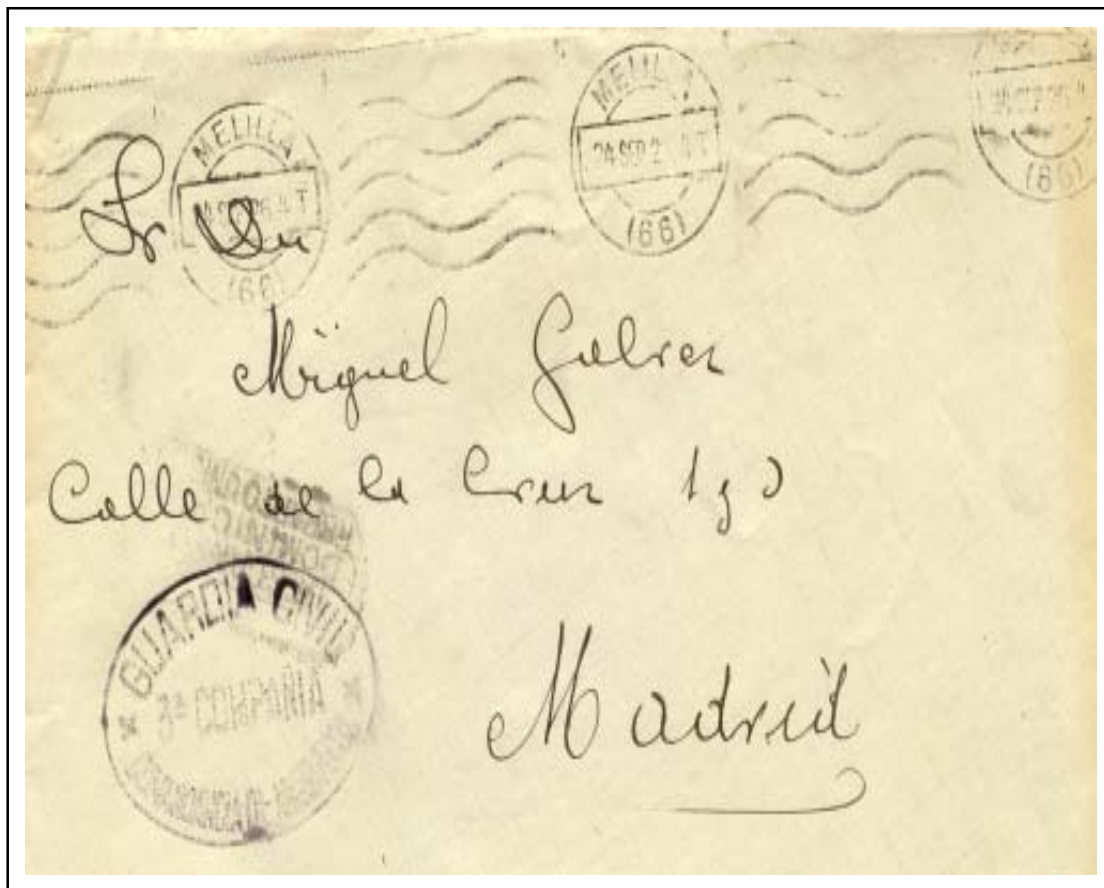 MELILLA
(66)
MELILLA
24 SEP 2
(66)
(66)
Sr Dn
Miguel Galvez
Calle de la Cruz 1
GUARDIA CIVIL
3ª COMPAÑIA
Madrid